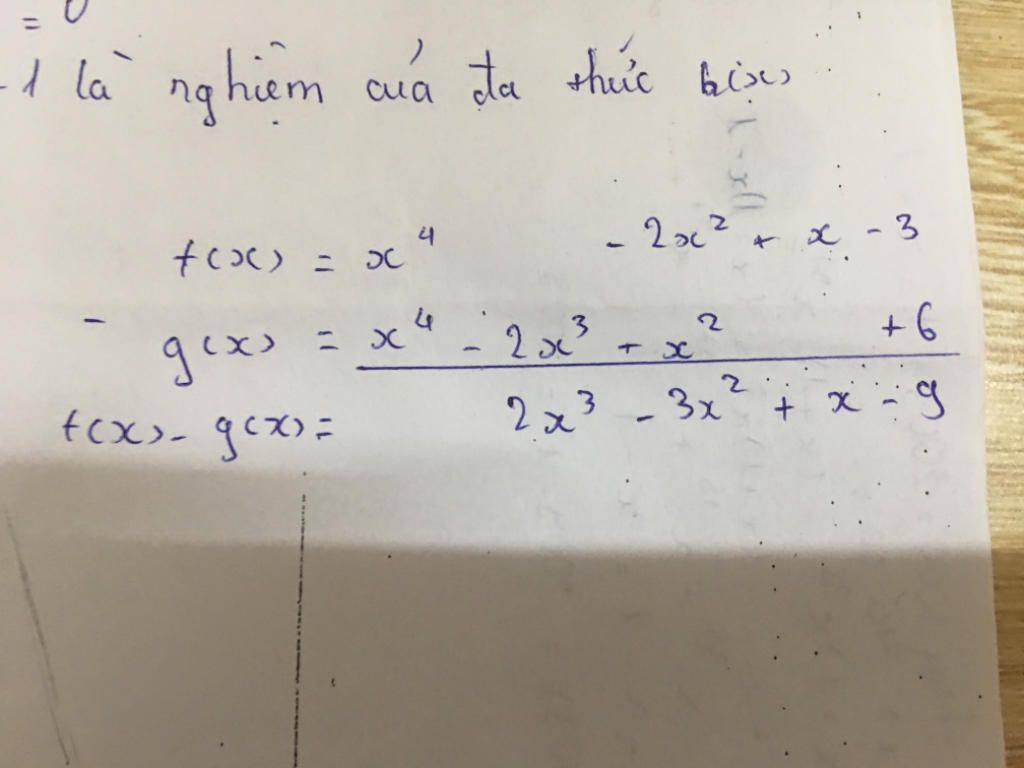 = 0
-1 là nghiệm của đa thức h(x)
f(x) = x⁴ - 2x² + x - 3
- g(x) = x⁴ - 2x³ + x² + 6
f(x) - g(x) = 2x³ - 3x² + x - 9